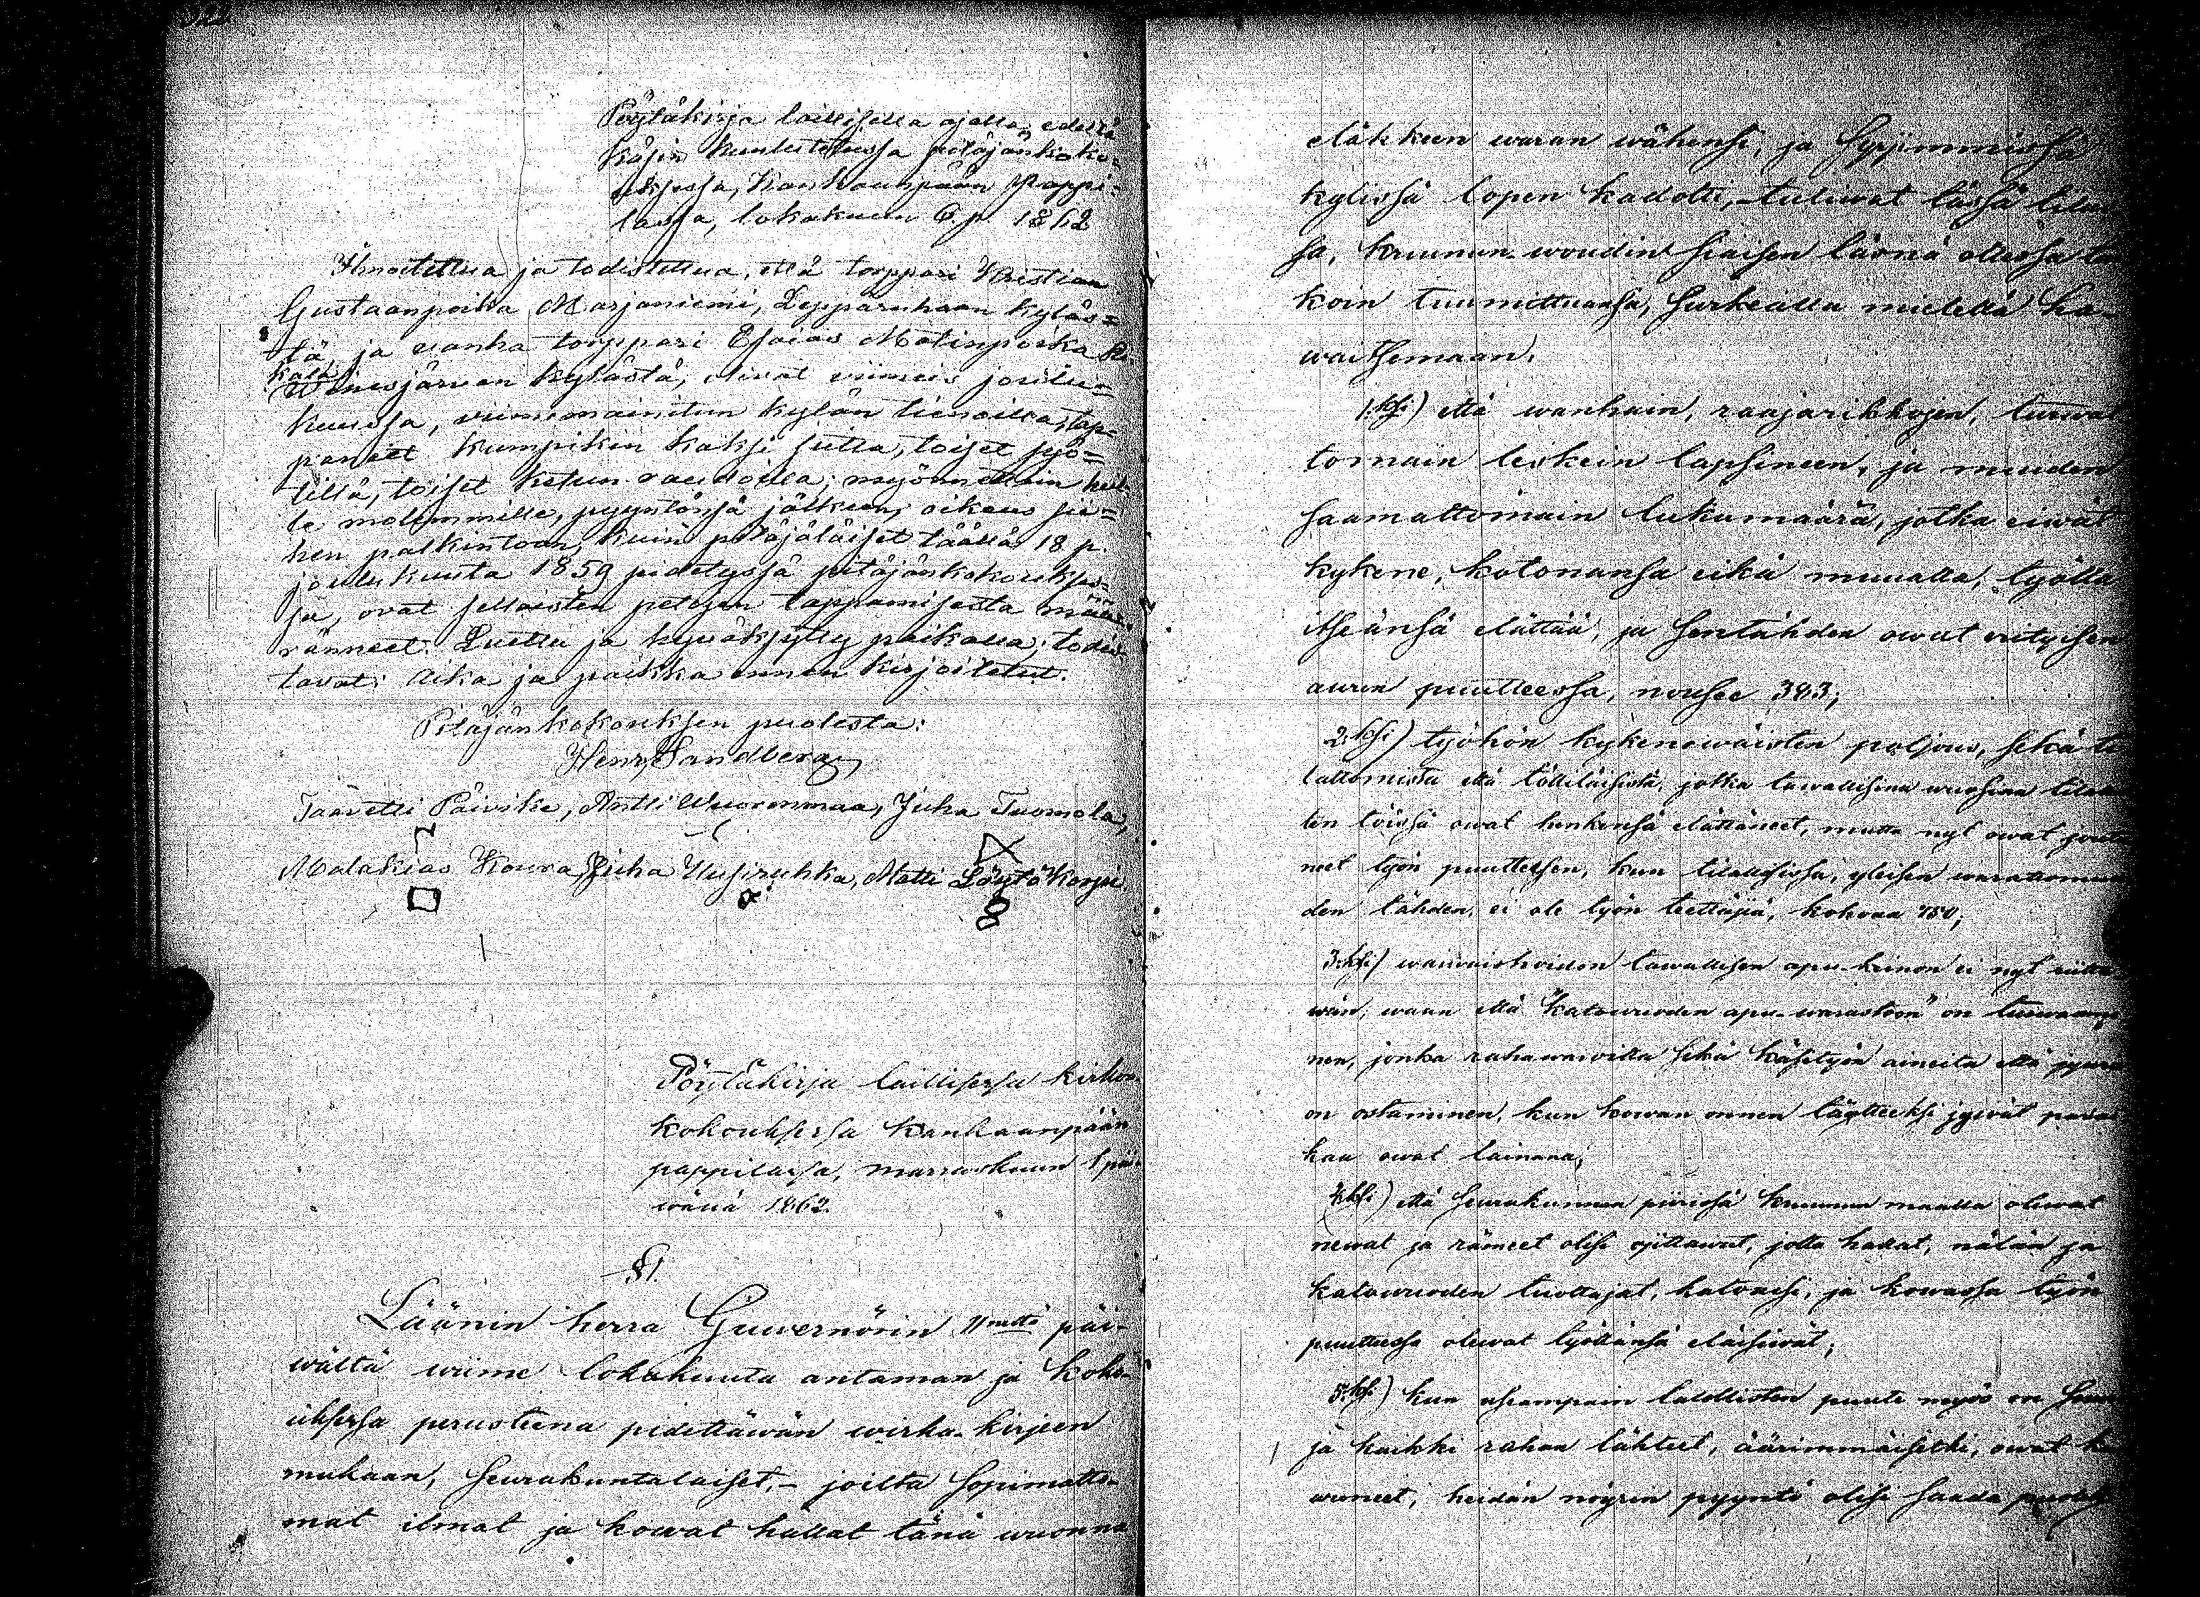 322
Pöytäkirja laillisella ajalla edeltä
käsin kuulutetussa pitäjänkoko-
uksessa, Kankaanpään Pappi-
lassa, lokakuun 6 p. 1862
Ilmoitettua ja todistettua, että torppari Kristian
Gustaanpoika Marjaniemi, Leppäruhaan kyläs=
tä, ja vanha torppari Esaias Matinpoika
Wenesjärven kylästä, olivat viimeis joulu=
kuussa, viimemainitun kylän tienoilla, tap=
paneet kumpikin kaksi sutta, toiset syö=
tillä, toiset ketun raudoilla; myönnettiin heil-
le molemmille, pyyntönsä jälkeen, oikeus sii=
hen palkintoon, kuin pitäjäläiset täällä 18 p.
joulukuuta 1859 pidetyssä pitäjänkokoukses=
sa, ovat sellaisten petojen tappamisesta mää-
ränneet. Luettu ja hyväksytty paikalla; todis-
tavat: Aika ja paikka ennen kirjoitetut.
Pitäjänkokouksen puolesta:
Henr. Sandberg
Taavetti Päivike, Antti Wuorenmaa, Juha Tuomola,
Malakias Koura, Juha Uusiruhka, Matti Löytökorpi
Pöytäkirja laillisessa kirkon-
kokouksessa Kankaanpään
pappilassa, marraskuun 1 päi-
wänä 1862.
§ 1.
Läänin herra Guvernörin 11nnestä päi-
wältä wiime lokakuuta antaman ja koko-
uksessa perusteena pidettäwän wirka-kirjeen
mukaan, Seurakuntalaiset, - joilta sopimatto-
mat ilmat ja kowat hallat tänä wuonna
eläkkeen waran wähensi, ja syrjimmissä
kylissä lopen kadotti, tuliwat tässä tilai
sa, kruunun-woudin läsnä ollessa
koin tuumittuansa, surkealla mielellä ha-
waitsemaan.
1:ksi) että wanhain, raajarikkojen, turwat
tomain leskein lapsineen, ja muuden
saamattomain lukumäärä, jotka eiwät
kykene, kotonansa eikä muualla, työllä
itseänsä elättää, ja sentähden owat erityisen
awun puutteessa, nousee 383;
2:ksi) työhön kykenewäisten paljous, sekä ti
lattomista että tölliläisistä, jotka tawallisina wuosina tilallis
ten töissä owat henkensä elättäneet, mutta nyt owat joutu
neet työn puutteesen, kun tilallisissa, yleisen warattomuu
den tähden, ei ole työn teettäjiä, kohoaa 750;
3:ksi) waiwaishoidon tawallisen apu-keinon ei nyt riittä
wän; waan että "katowuoden apu-warastoon" on turwaami
nen, jonka rahawaroilla sekä käsityön aineita että jywiä
on ostaminen, kun kowan onnen täytteeksi jywät
kaa owat lainana;
4:ksi) että Seurakunnan piirissä kruunun maalla olewat
newat ja rämeet olisi ojittawat, jotta hallat, nälän ja
katowuoden tuottajat, katoaisi, ja kowassa työn
puutteessa olewat työllänsä eläisiwät;
5:ksi) kun useampain talollisten puute myös on suuri
ja kaikki rahan lähteet, äärimmäisetki, owat kui
wuneet, heidän nöyrin pyyntö olisi saada